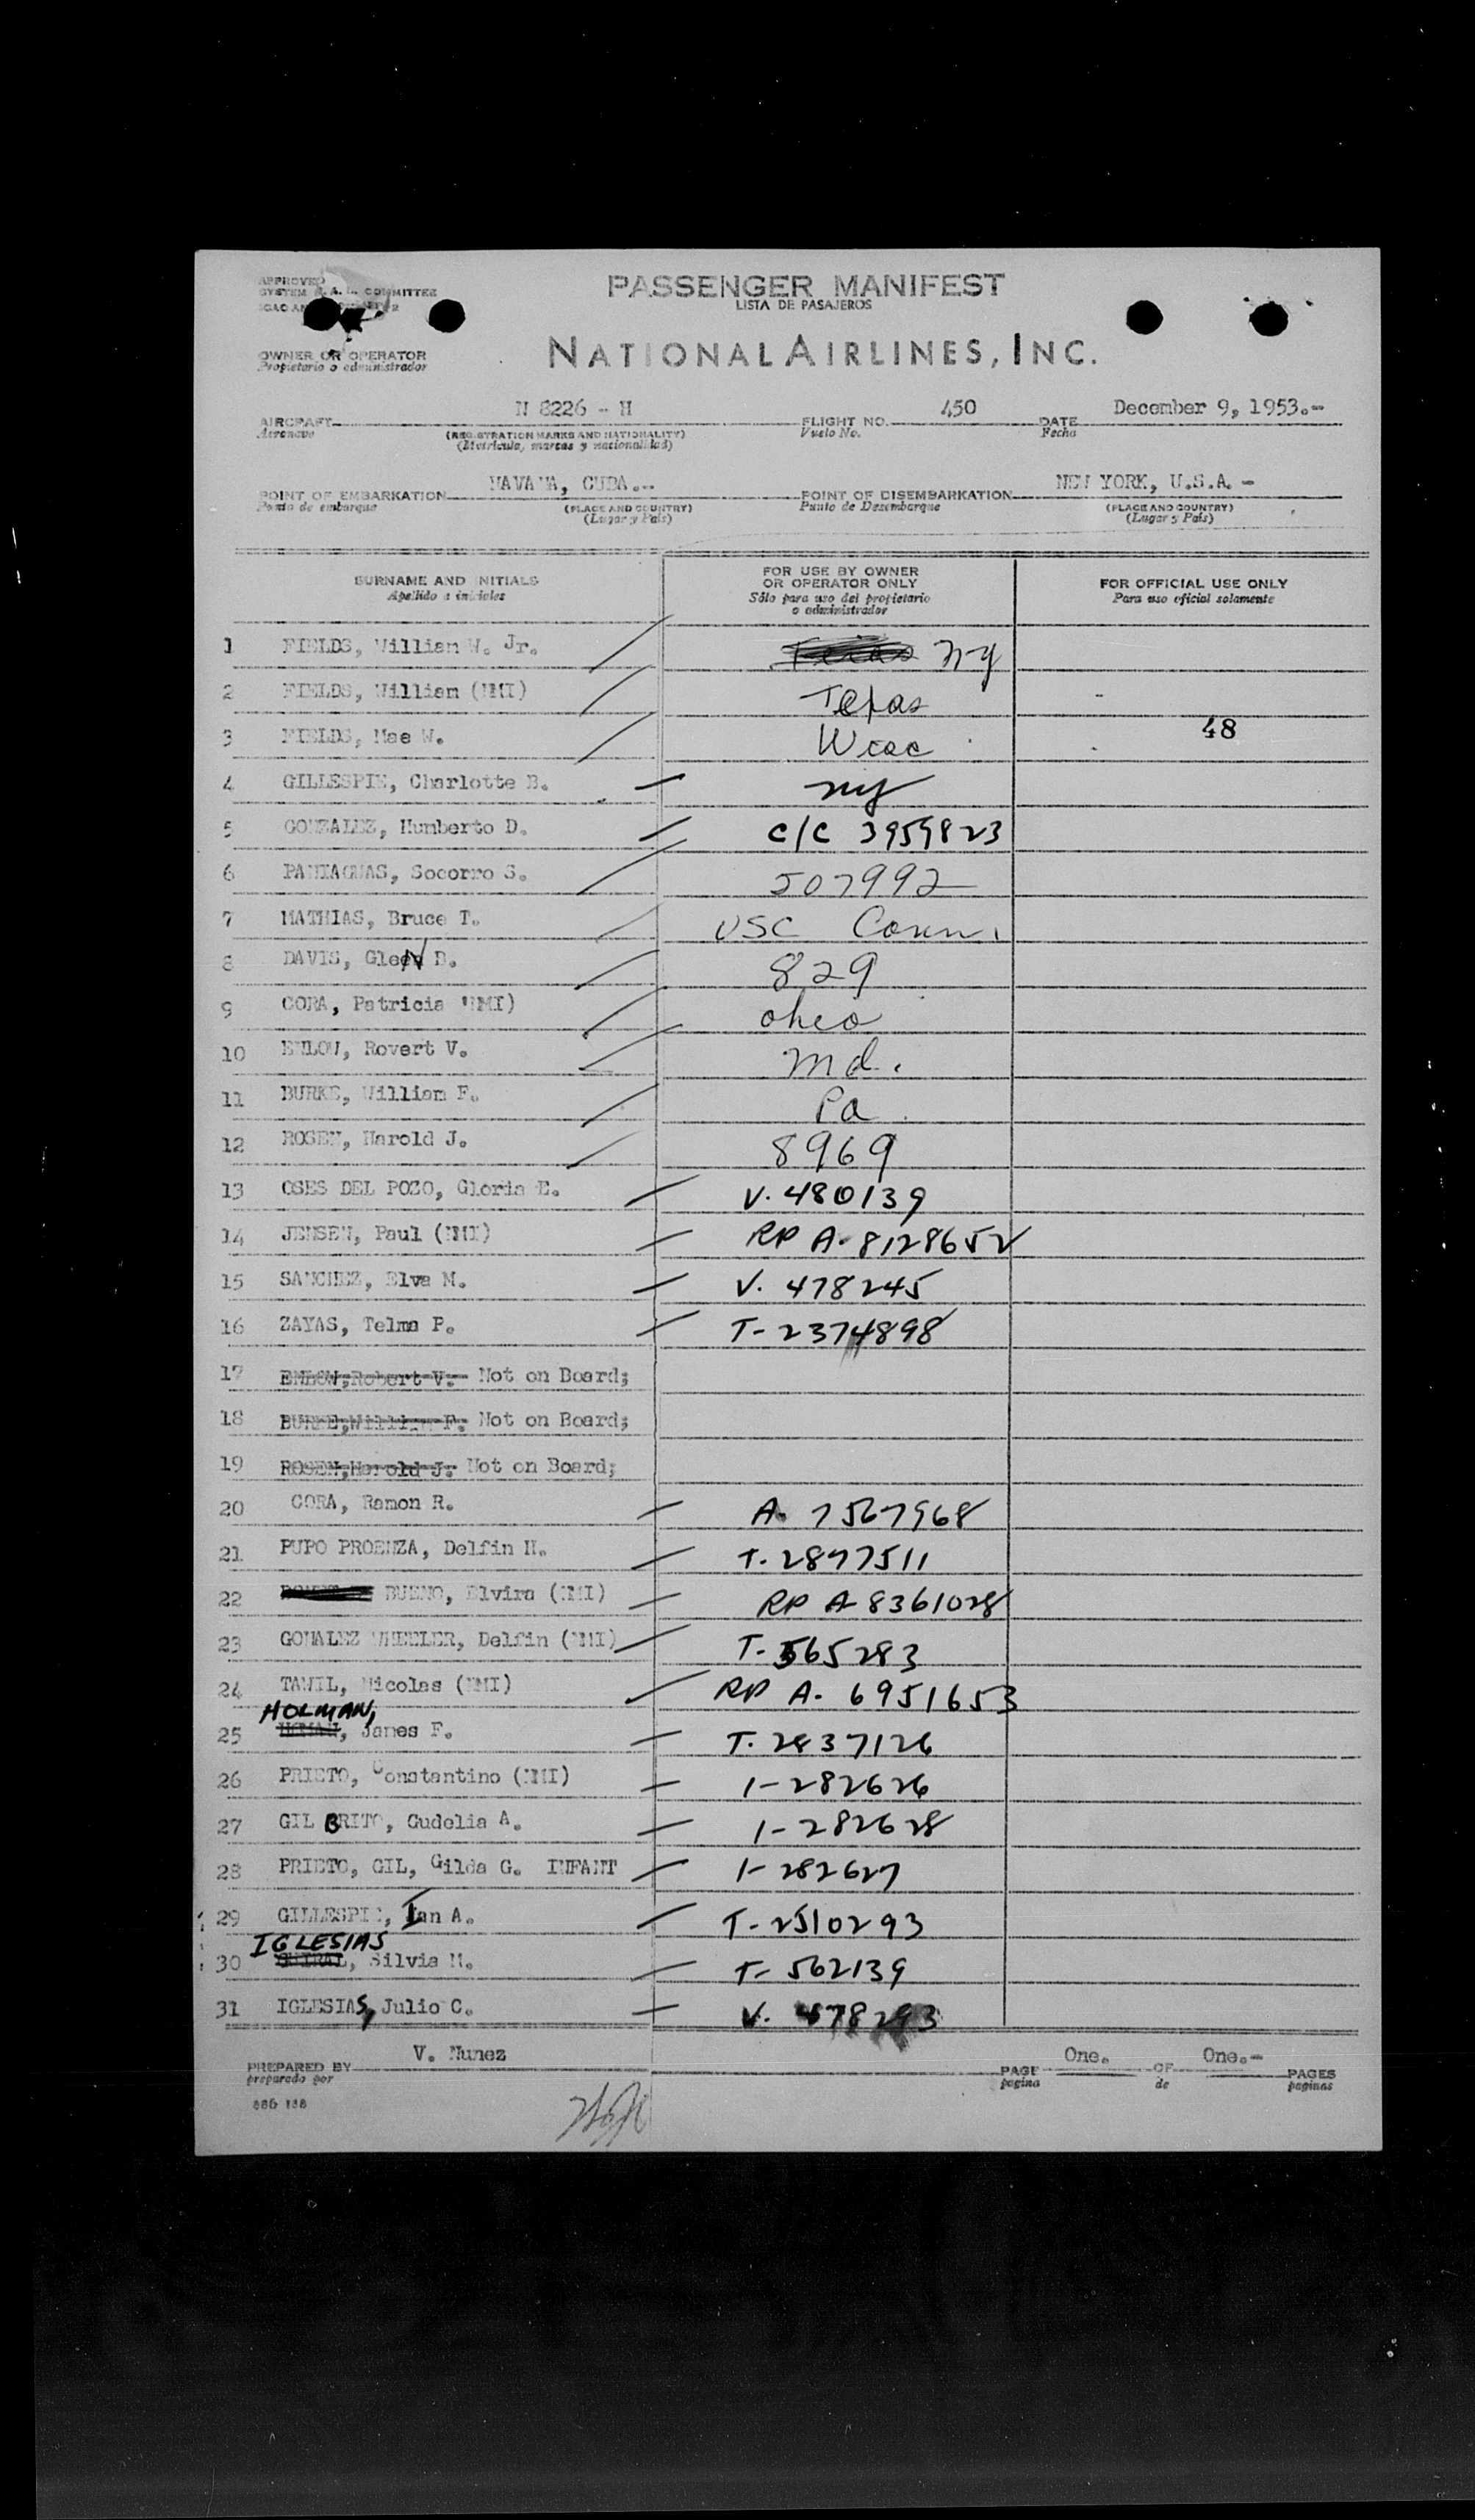 APPROVED
SYSTEM COMMITTEE
OWNER OR OPERATOR
Propietario o administrador
PASSENGER MANIFEST
LISTA DE PASAJEROS
NATIONAL AIRLINES, INC.
AIRCRAFT N 8226 - H FLIGHT NO. 450 DATE December 9, 1953.-
Aeronave (REGISTRATION MARKS AND NATIONALITY) Vuelo No. Fecha
(Matricula, marcas y nacionalidad)
POINT OF EMBARKATION HAVANA, CUBA.-- POINT OF DISEMBARKATION NEW YORK, U.S.A. -
Punto de embarque (PLACE AND COUNTRY) Punto de Desembarque (PLACE AND COUNTRY)
(Lugar y País) (Lugar y País)
SURNAME AND INITIALS FOR USE BY OWNER OR OPERATOR ONLY FOR OFFICIAL USE ONLY
Apellido e iniciales Sólo para uso del propietario o administrador Para uso oficial solamente
1 FIELDS, William W. Jr. Texas NY
2 FIELDS, William (NMI) Texas
3 FIELDS, Mae W. 48
4 GILLESPIE, Charlotte B. NY
5 GONZALEZ, Humberto D. C/C 3959823
6 PANIAGUAS, Socorro S. 507992
7 MATHIAS, Bruce T. USC Conn.
8 DAVIS, Glenn B. 829
9 CORA, Patricia (NMI) Ohio
10 ENLOW, Rovert V. Md.
11 BURKE, William F. Pa.
12 ROSEN, Harold J. 8969
13 OSES DEL POZO, Gloria E. V. 480139
14 JENSEN, Paul (NMI) RP A-8128652
15 SANCHEZ, Elva M. V. 478245
16 ZAYAS, Telma P. T-2374898
17 ENLOW,Robert V. Not on Board;
18 BURKE,William F. Not on Board;
19 ROSEN,Harold J. Not on Board;
20 CORA, Ramon R. A- 7567968
21 PUPO PROENZA, Delfin H. T-2877511
22 BUENO, Elvira (NMI) RP A-8361028
23 GONALEZ WHEELER, Delfin (NMI) T-565283
24 TAWIL, Nicolas (NMI) RP A- 6951653
HOLMAN,
25 James F. T. 2837126
26 PRIETO, Constantino (NMI) 1-282626
27 GIL BRITO, Gudelia A. 1-282628
28 PRIETO, GIL, Gilda G. INFANT 1-282627
29 GILLESPIE, Ian A. T-2510293
IGLESIAS
30 Silvia M. T- 562139
31 IGLESIAS, Julio C. V. 478293
PREPARED BY V. Nunez PAGE One. OF One.- PAGES
preparado por pagina de paginas